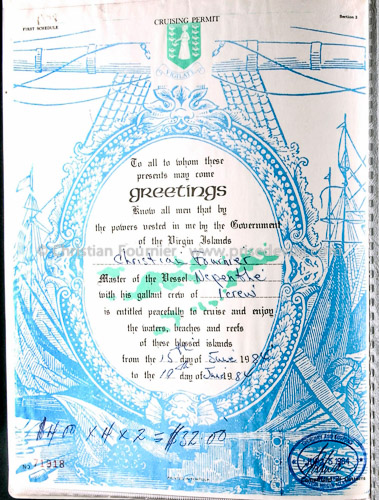 CRUISING PERMIT
FIRST SCHEDULE
Section 3
VIGILATE
To all to whom these
presents may come
GREETINGS
Know all men that by
the powers vested in me by the Government
of the Virgin Islands
Christian Fournier
Master of the Vessel Nepenthe
with his gallant crew of 1 crew
is entitled peacefully to cruise and enjoy
the waters, beaches and reefs
of these blessed islands
from the 15th day of June 1984
to the 18th day of June 1984
$4.00 x 4 x 2 = $32.00
No 71918